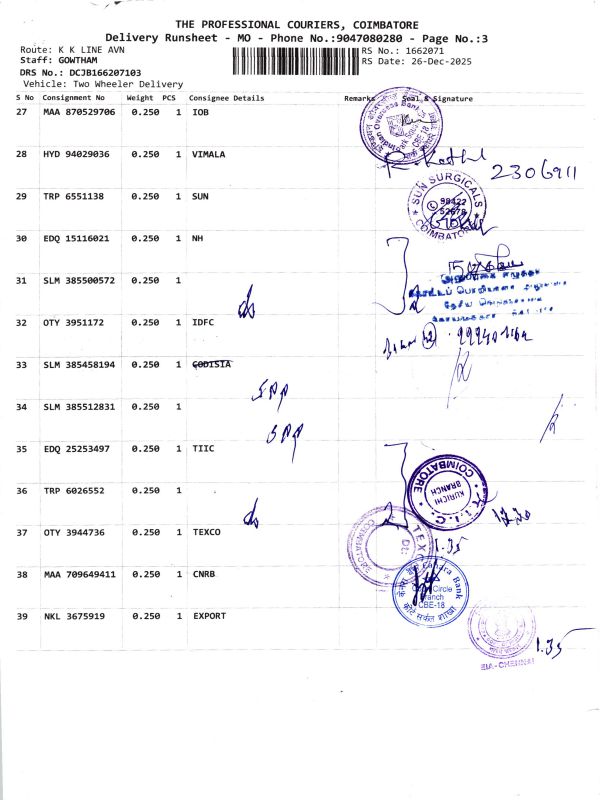 THE PROFESSIONAL COURIERS, COIMBATORE
Delivery Runsheet - MO - Phone No.:9047080280 - Page No.:3
Route: K K LINE AVN RS No.: 1662071
Staff: GOWTHAM RS Date: 26-Dec-2025
DRS No.: DCJB166207103
Vehicle: Two Wheeler Delivery
S No Consignment No Weight PCS Consignee Details Remarks Seal & Signature
27 MAA 870529706 0.250 1 IOB
28 HYD 94029036 0.250 1 VIMALA
2306911
29 TRP 6551138 0.250 1 SUN
SUN SURGICALS
COIMBATORE
30 EDQ 15116021 0.250 1 NH
31 SLM 385500572 0.250 1
32 OTY 3951172 0.250 1 IDFC
33 SLM 385458194 0.250 1 GODISIA
34 SLM 385512831 0.250 1
35 EDQ 25253497 0.250 1 TIIC
COIMBATORE
KURICHI
BRANCH
T.I.I.C.
36 TRP 6026552 0.250 1
37 OTY 3944736 0.250 1 TEXCO
TEXCO
1.35
38 MAA 709649411 0.250 1 CNRB
Canara Bank
Circle
Branch
CBE-18
39 NKL 3675919 0.250 1 EXPORT
EIA-CHENNAI
1.35